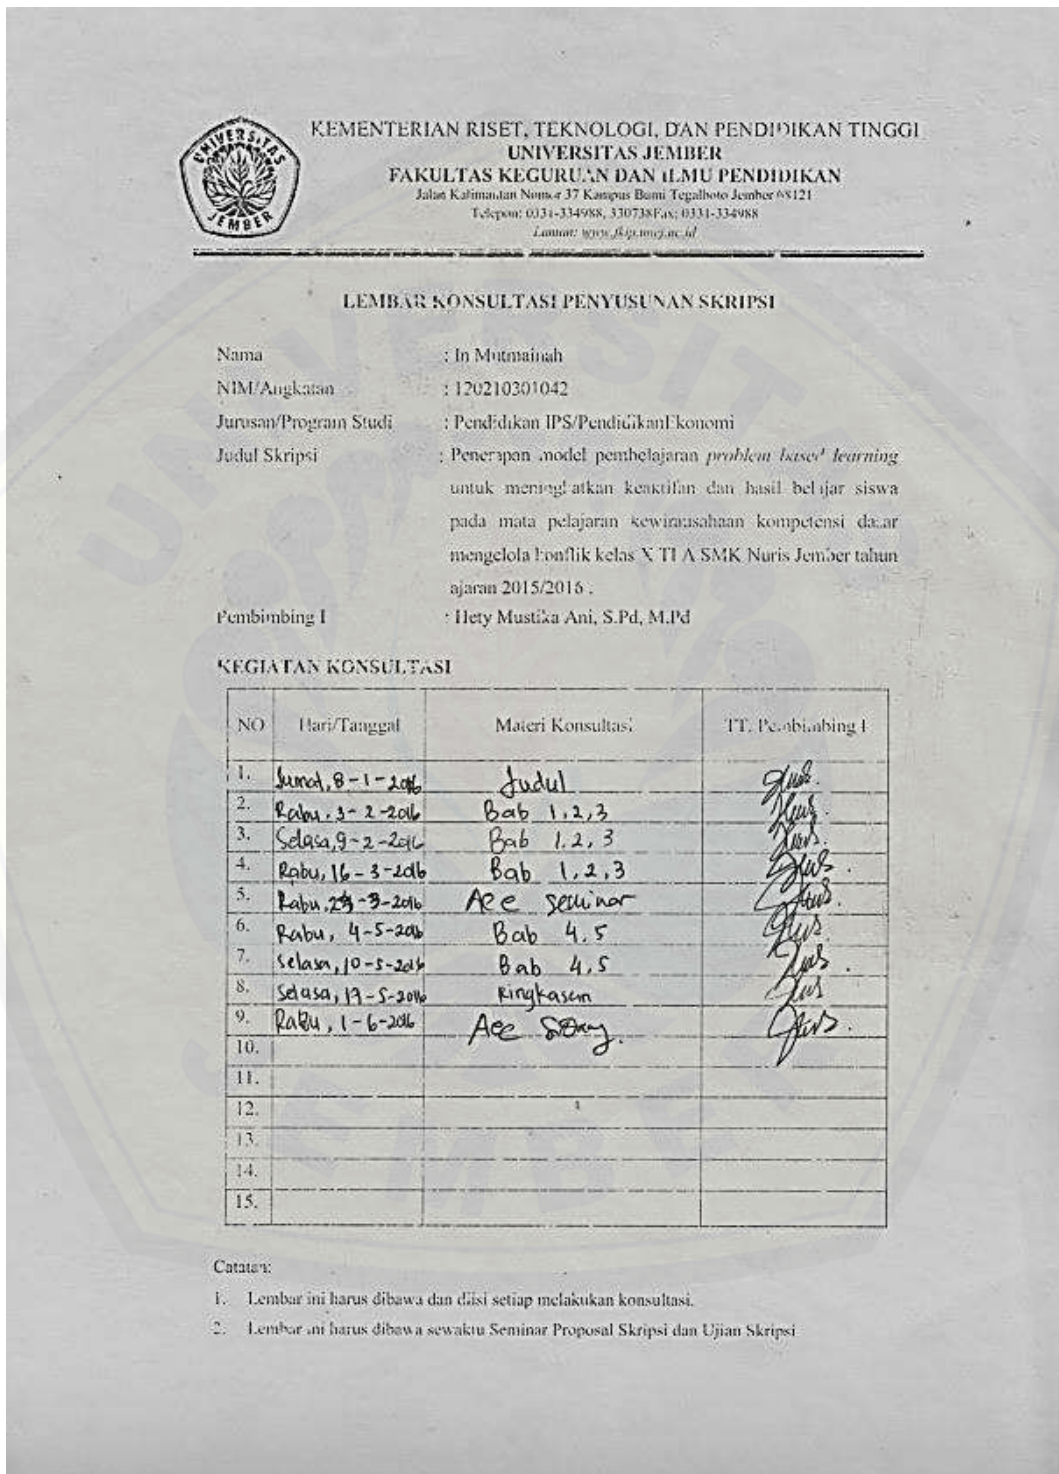 UNIVERSITAS
JEMBER
KEMENTERIAN RISET, TEKNOLOGI, DAN PENDIDIKAN TINGGI
UNIVERSITAS JEMBER
FAKULTAS KEGURUAN DAN ILMU PENDIDIKAN
Jalan Kalimantan Nomor 37 Kampus Bumi Tegalboto Jember 68121
Telepon: 0331-334988, 330738Fax: 0331-334988
Laman: www.fkip.unej.ac.id
LEMBAR KONSULTASI PENYUSUNAN SKRIPSI
Nama : In Mutmainah
NIM/Angkatan : 120210301042
Jurusan/Program Studi : Pendidikan IPS/PendidikanEkonomi
Judul Skripsi : Penerapan model pembelajaran problem based learning
untuk meningkatkan keaktifan dan hasil belajar siswa
pada mata pelajaran kewirausahaan kompetensi dasar
mengelola konflik kelas X TI A SMK Nuris Jember tahun
ajaran 2015/2016 .
Pembimbing I : Hety Mustika Ani, S.Pd, M.Pd
KEGIATAN KONSULTASI
NO Hari/Tanggal Materi Konsultasi TT. Pembimbing I
1. Jumat, 8-1-2016 Judul
2. Rabu, 3-2-2016 Bab 1,2,3
3. Selasa, 9-2-2016 Bab 1.2, 3
4. Rabu, 16-3-2016 Bab 1,2,3
5. Rabu, -3-2016 Acc seminar
6. Rabu, 4-5-2016 Bab 4.5
7. Selasa, 10-5-2016 Bab 4,5
8. Selasa, 17-5-2016 Ringkasan
9. Rabu, 1-6-2016 Acc
10.
11.
12.
13.
14.
15.
Catatan:
1. Lembar ini harus dibawa dan diisi setiap melakukan konsultasi.
2. Lembar ini harus dibawa sewaktu Seminar Proposal Skripsi dan Ujian Skripsi